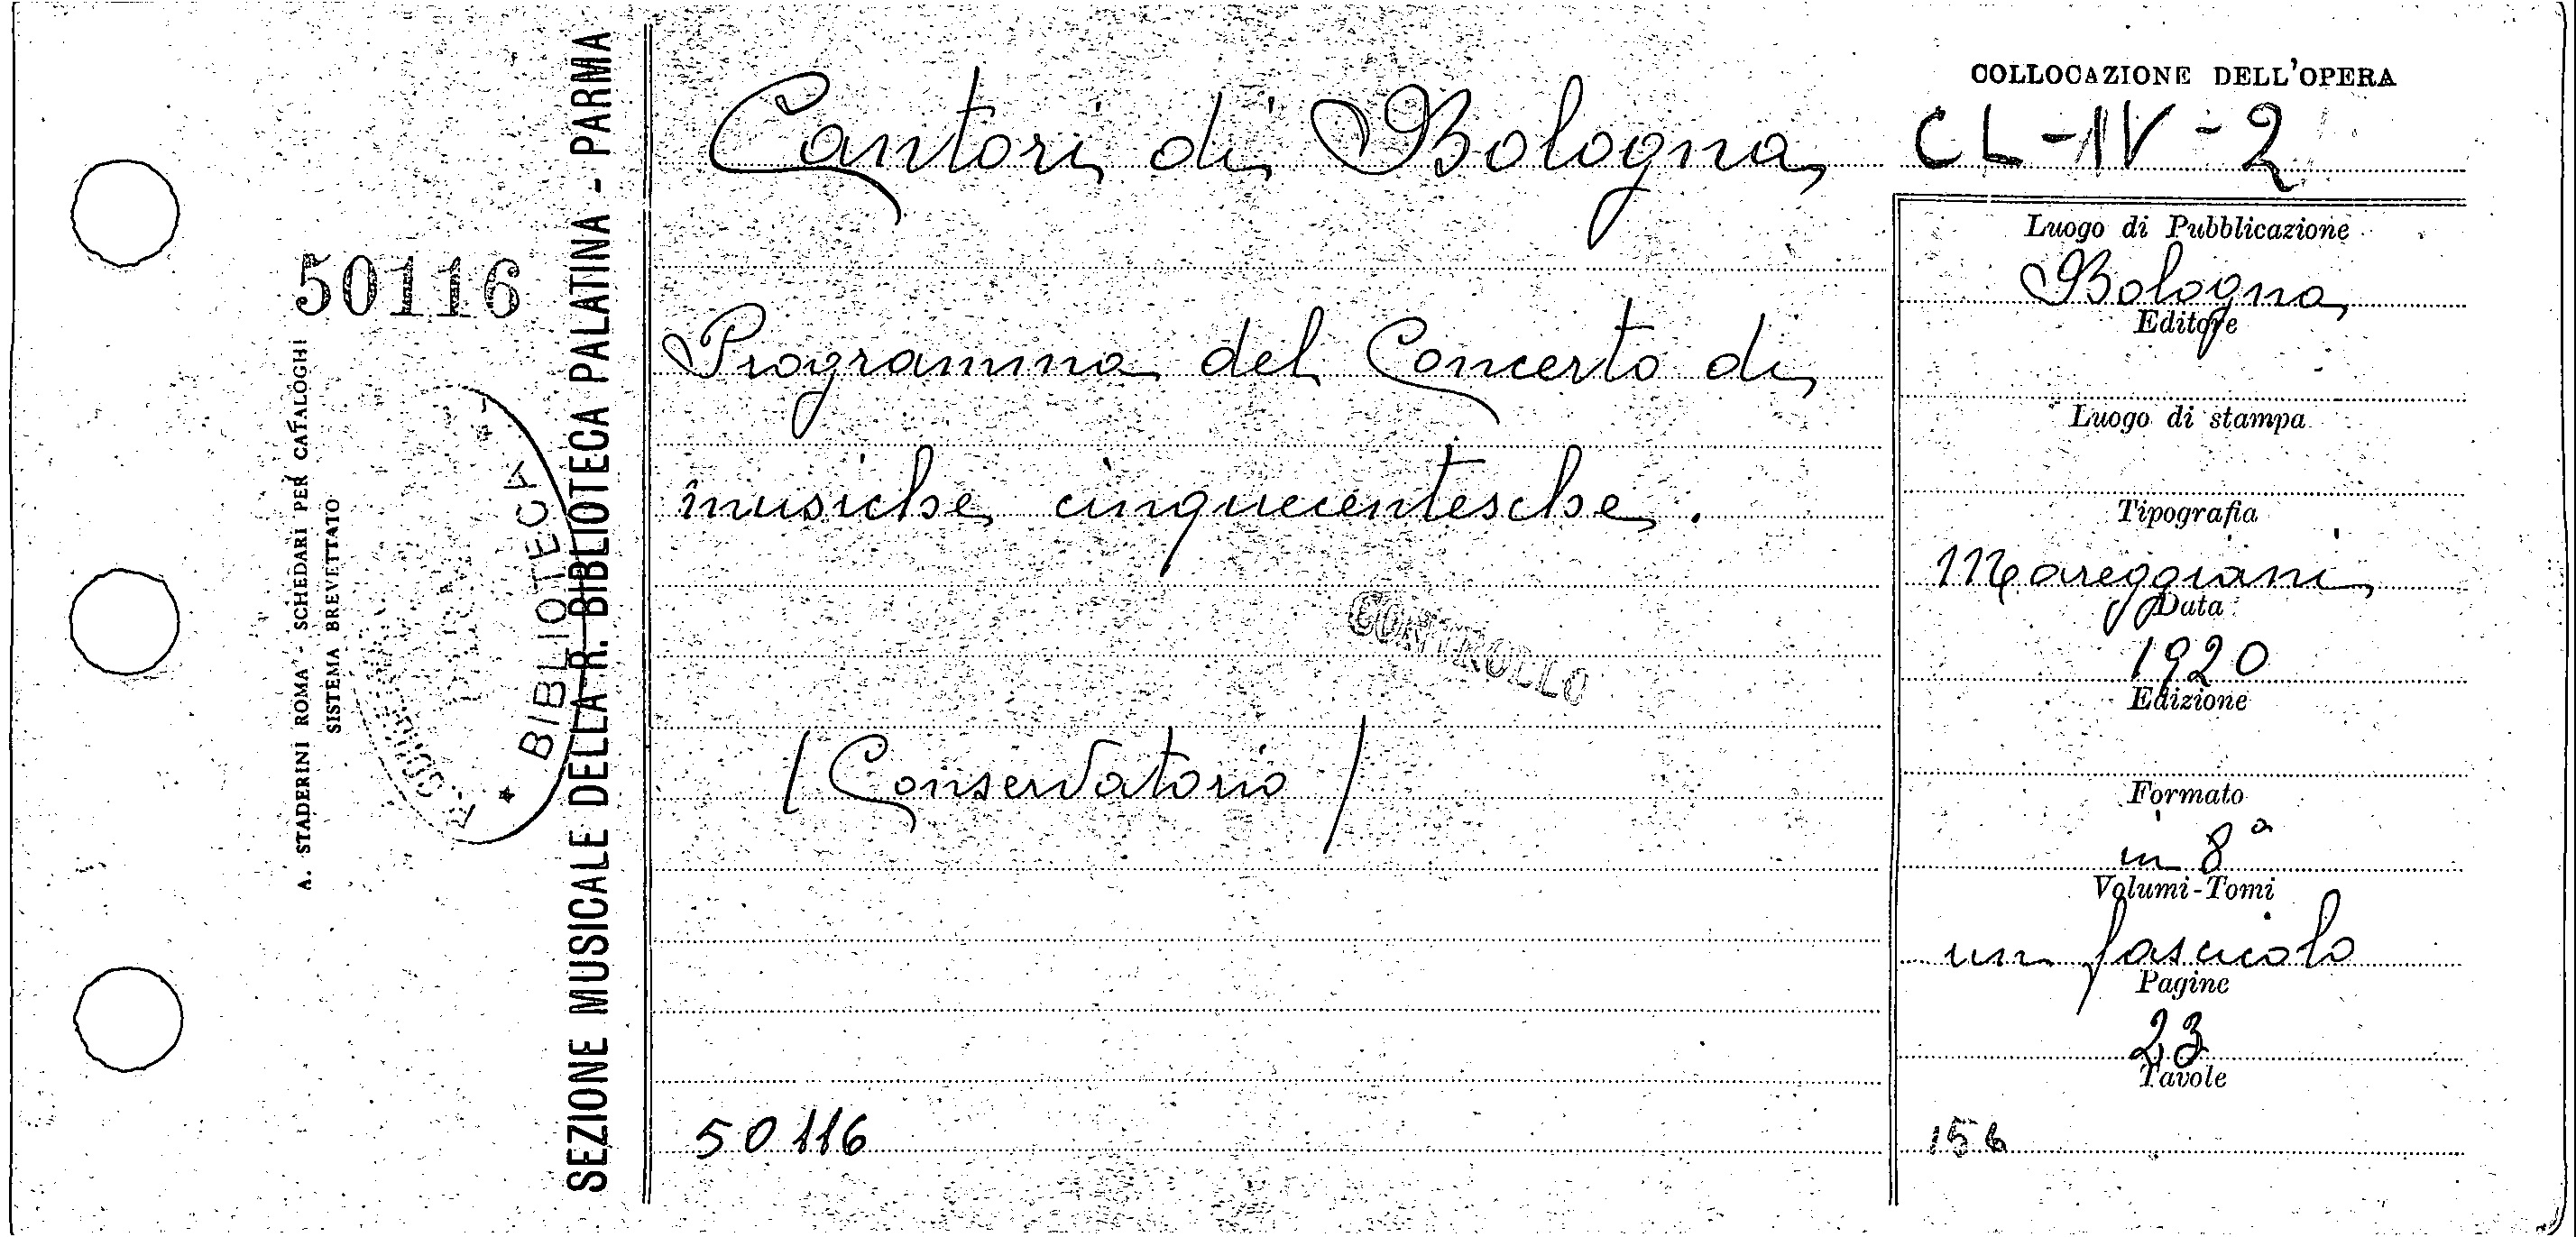 SEZIONE MUSICALE DELLA R. BIBLIOTECA PALATINA - PARMA
A. STADERINI ROMA - SCHEDARI PER CATALOGHI
SISTEMA BREVETTATO
50116
BIBLIOTECA
Cantori di Bologna
Programma del Concerto di
musiche cinquecentesche.
CONTROLLO
/ Conservatorio /
50116
COLLOCAZIONE DELL'OPERA
CL-IV-2
Luogo di Pubblicazione
Bologna
Editore
Luogo di stampa
Tipografia
Mareggiani
Data
1920
Edizione
Formato
in 8ª
Volumi-Tomi
un fascicolo
Pagine
23
Tavole
156